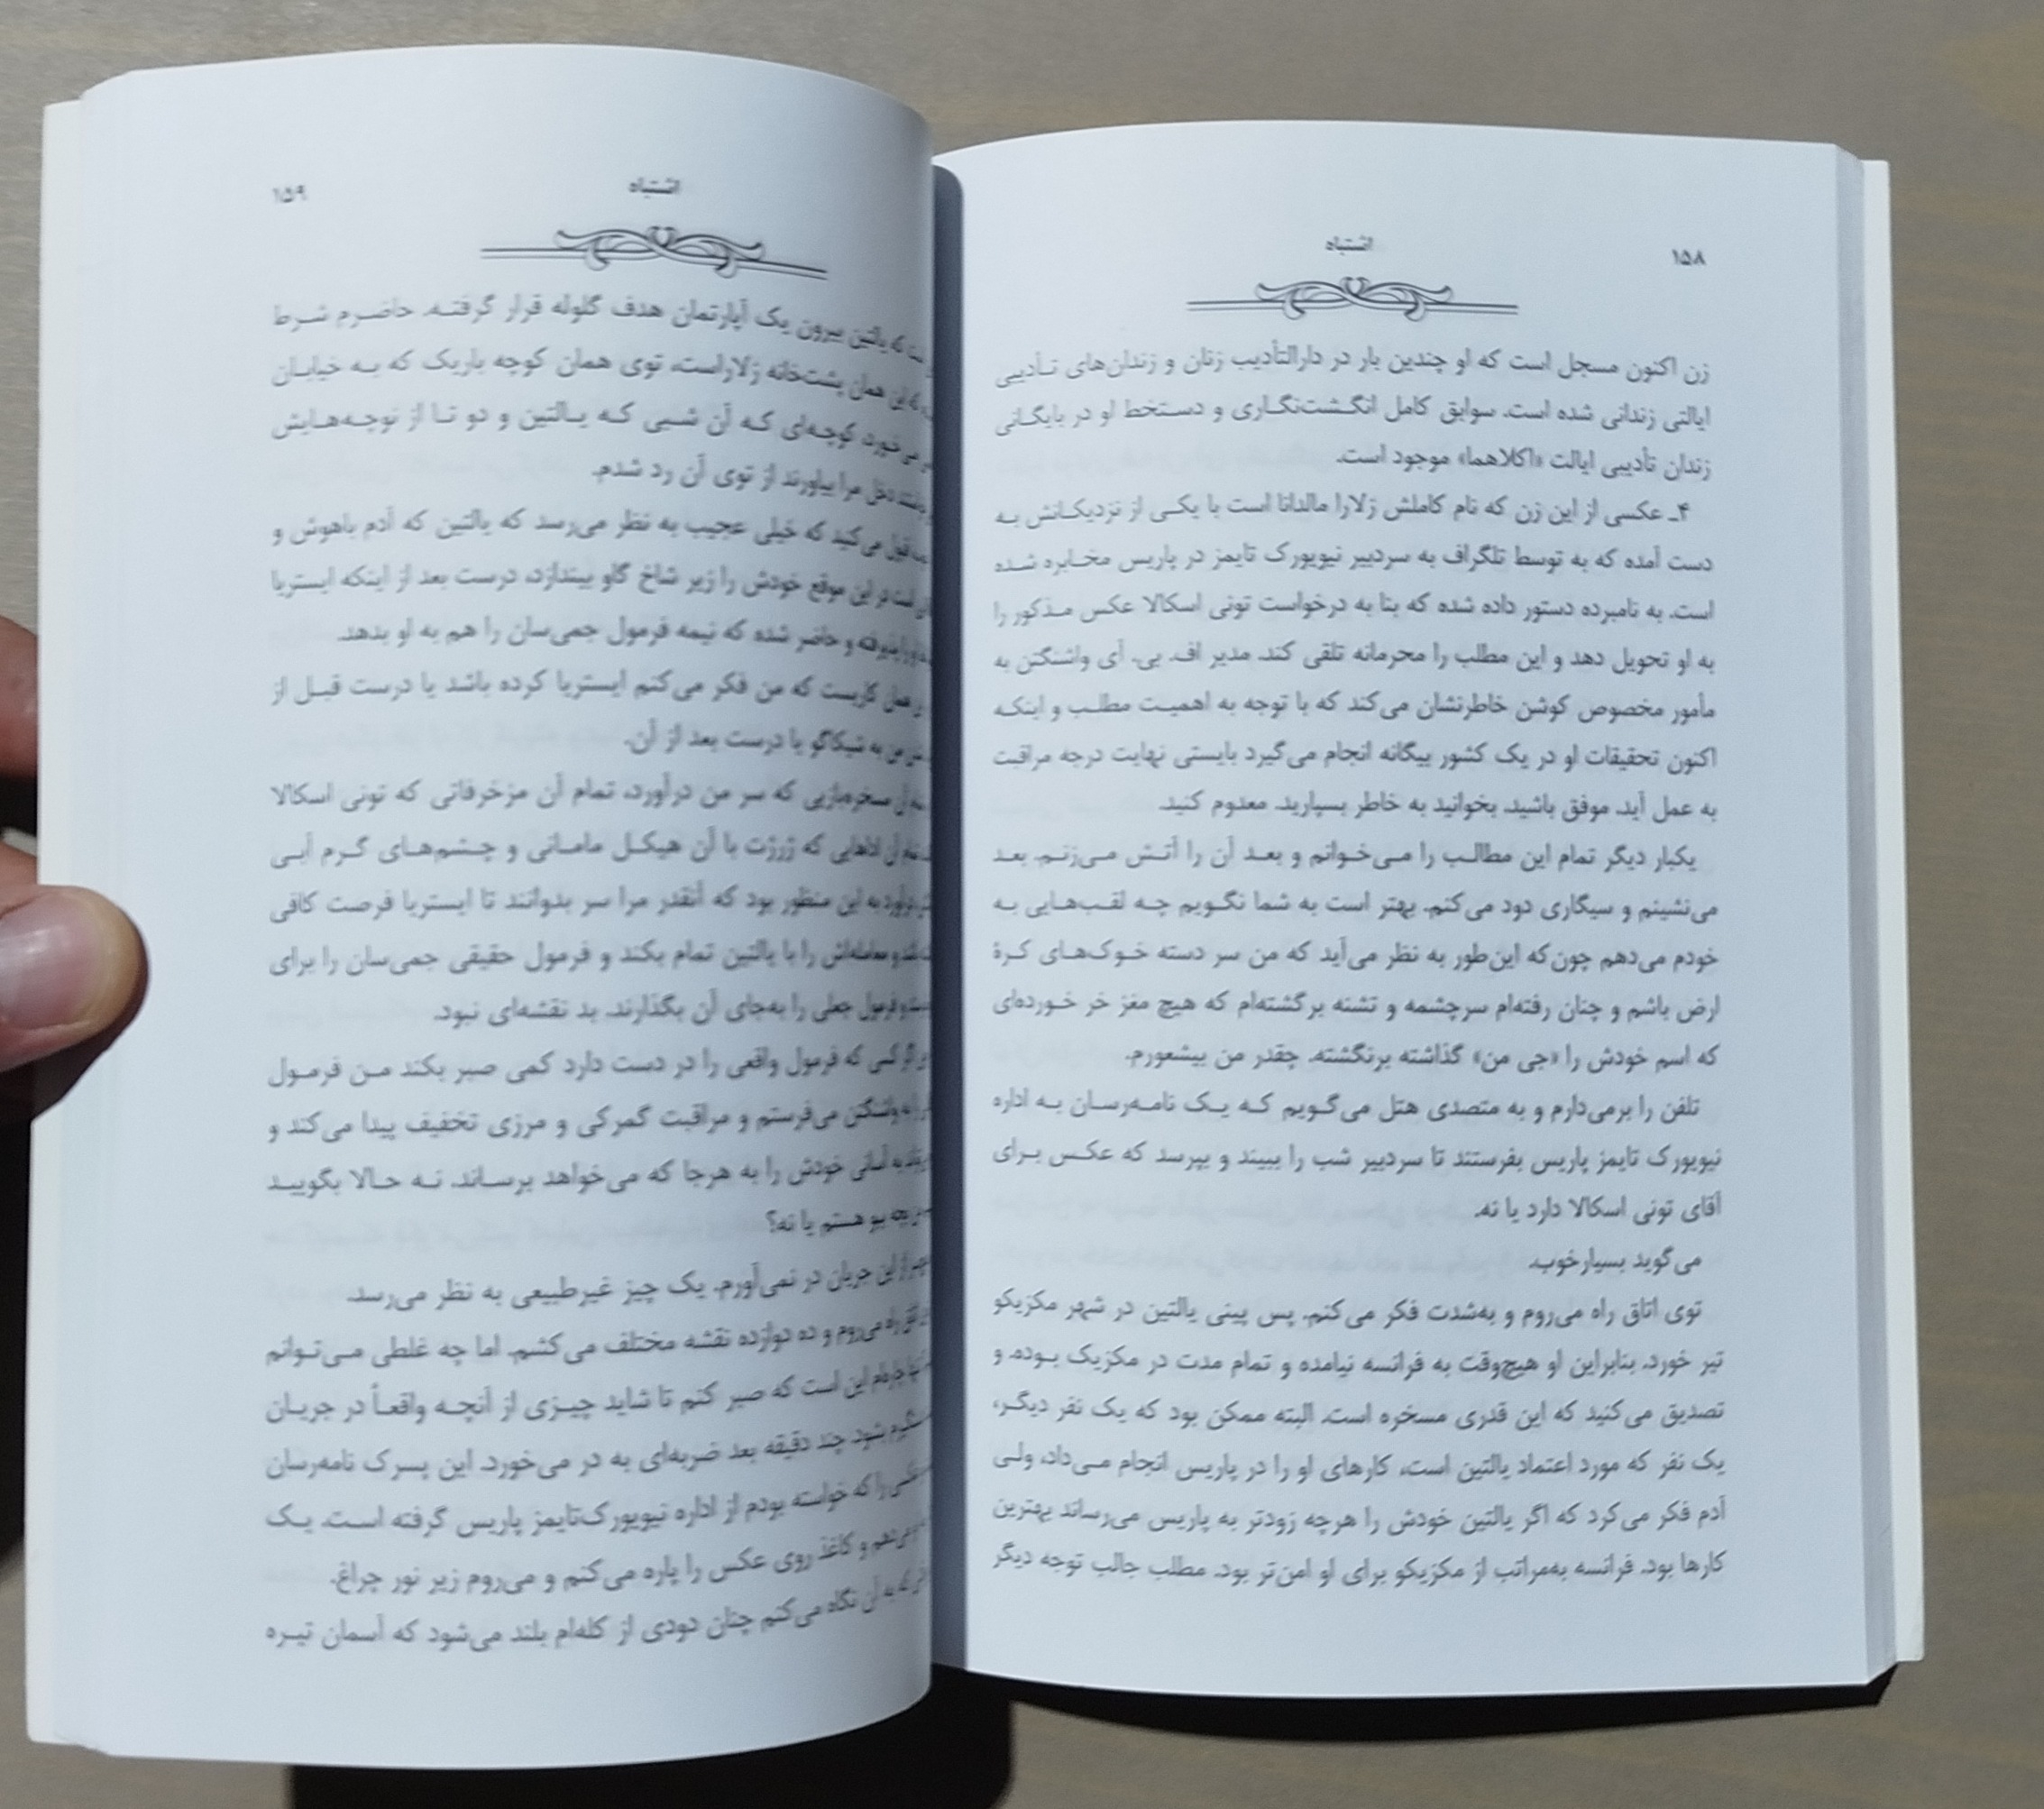 ۱۵۸
اشتباه
زن اکنون مسجل است که او چندین بار در دارالتأدیب زنان و زندان‌های تـأدیبی
ایالتی زندانی شده است. سوابق کامل انگـشت‌نگـاری و دسـتخط او در بایگـانی
زندان تأدیبی ایالت «اکلاهما» موجود است.
۴ـ عکسی از این زن که نام کاملش زلارا مالدانا است با یکـی از نزدیکـانش بـه
دست آمده که به توسط تلگراف به سردبیر نیویورک تایمز در پاریس مخـابره شـده
است. به نامبرده دستور داده شده که بنا به درخواست تونی اسکالا عکس مـذکور را
به او تحویل دهد و این مطلب را محرمانه تلقی کند. مدیر اف. بی. آی واشنگتن به
مأمور مخصوص کوشن خاطرنشان می‌کند که با توجه به اهمیـت مطلـب و اینکـه
اکنون تحقیقات او در یک کشور بیگانه انجام می‌گیرد بایستی نهایت درجه مراقبت
به عمل آید. موفق باشید. بخوانید به خاطر بسپارید. معدوم کنید.
یکبار دیگر تمام این مطالـب را مـی‌خـوانم و بعـد آن را آتـش مـی‌زنـم. بعـد
می‌نشینم و سیگاری دود می‌کنم. بهتر است به شما نگـویم چـه لقـب‌هـایی بـه
خودم می‌دهم چون‌که این‌طور به نظر می‌آید که من سر دسته خـوک‌هـای کـرهٔ
ارض باشم و چنان رفته‌ام سرچشمه و تشنه برگشته‌ام که هیچ مغز خر خـورده‌ای
که اسم خودش را «جی من» گذاشته برنگشته. چقدر من بیشعورم.
تلفن را برمی‌دارم و به متصدی هتل می‌گـویم کـه یـک نامـه‌رسـان بـه اداره
نیویورک تایمز پاریس بفرستند تا سردبیر شب را ببیند و بپرسد که عکـس بـرای
آقای تونی اسکالا دارد یا نه.
می‌گوید بسیارخوب.
توی اتاق راه می‌روم و به‌شدت فکر می‌کنم. پس پینی یالتین در شهر مکزیکو
تیر خورد. بنابراین او هیچ‌وقت به فرانسه نیامده و تمام مدت در مکزیک بـوده. و
تصدیق می‌کنید که این قدری مسخره است. البته ممکن بود که یک نفر دیگـر،
یک نفر که مورد اعتماد یالتین است، کارهای او را در پاریس انجام مـی‌داد، ولـی
آدم فکر می‌کرد که اگر یالتین خودش را هرچه زودتر به پاریس می‌رساند بهترین
کارها بود. فرانسه به‌مراتب از مکزیکو برای او امن‌تر بود. مطلب جالب توجه دیگر
اشتباه
۱۵۹
که یالتین بیرون یک آپارتمان هدف گلوله قرار گرفتـه. حاضـرم شـرط
که این همان پشت‌خانه زلاراست، توی همان کوچه باریک که بـه خیابـان
می‌خورد. کوچـه‌ای کـه آن شـبی کـه یـالتین و دو تـا از نوچـه‌هـایش
دخل مرا بیاورند از توی آن رد شدم.
قبول می‌کنید که خیلی عجیب به نظر می‌رسد که یالتین که آدم باهوش و
در این موقع خودش را زیر شاخ گاو بیندازد، درست بعد از اینکه ایستریا
را پذیرفته و حاضر شده که نیمه فرمول جمی‌سان را هم به او بدهد.
همان کاریست که من فکر می‌کنم ایستریا کرده باشد یا درست قبـل از
من به شیکاگو یا درست بعد از آن.
آن مسخره‌بازیی که سر من درآورد، تمام آن مزخرفاتی که تونی اسکالا
آن لاهایی که ژرژت با آن هیکـل مامـانی و چـشم‌هـای گـرم آبـی
به این منظور بود که آنقدر مرا سر بدوانند تا ایستریا فرصت کافی
و معامله‌اش را با یالتین تمام بکند و فرمول حقیقی جمی‌سان را برای
و فرمول جعلی را به‌جای آن بگذارند. بد نقشه‌ای نبود.
که فرمول واقعی را در دست دارد کمی صبر بکند مـن فرمـول
را به واشنگتن می‌فرستم و مراقبت گمرکی و مرزی تخفیف پیدا می‌کند و
به آسانی خودش را به هرجا که می‌خواهد برسـاند. نـه حـالا بگوییـد
بچه یو هستم یا نه؟
از این جریان در نمی‌آورم. یک چیز غیرطبیعی به نظر می‌رسد.
اتاق راه می‌روم و ده دوازده نقشه مختلف می‌کشم. اما چه غلطی مـی‌تـوانم
چاره‌ام این است که صبر کنم تا شاید چیـزی از آنچـه واقعـاً در جریـان
بشود. چند دقیقه بعد ضربه‌ای به در می‌خورد. این پسرک نامه‌رسان
را که خواسته بودم از اداره نیویورک‌تایمز پاریس گرفته اسـت. یـک
و کاغذ روی عکس را پاره می‌کنم و می‌روم زیر نور چراغ.
که به آن نگاه می‌کنم چنان دودی از کله‌ام بلند می‌شود که آسمان تیـره